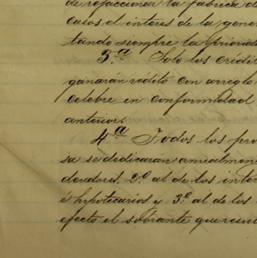 de refaccionar la fabrica de
casos el interes de la gene
tando siempre la priorida
3.ª Solo los credit
ganarán redito con arreglo
celebre en conformidad
anterior.
4.ª Todos los pro
sa se dedicarán anualmente
deudores. 2.º al de los inter
é hipotecarios y 3.º al de los
efecto el sobrante que resul